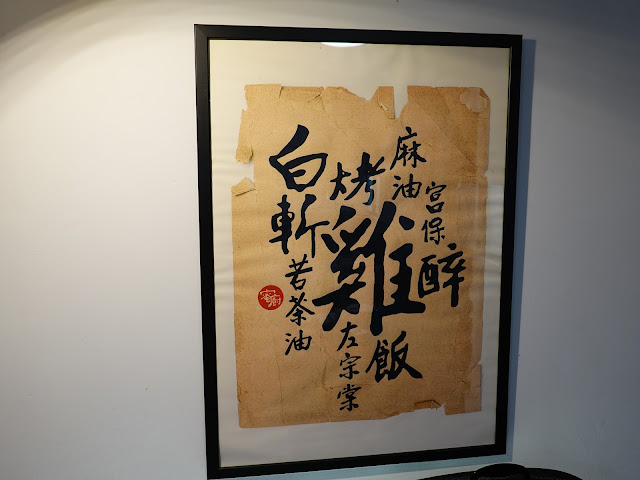 麻油
宮保
醉
烤
雞
飯
左宗棠
白斬
苦茶油